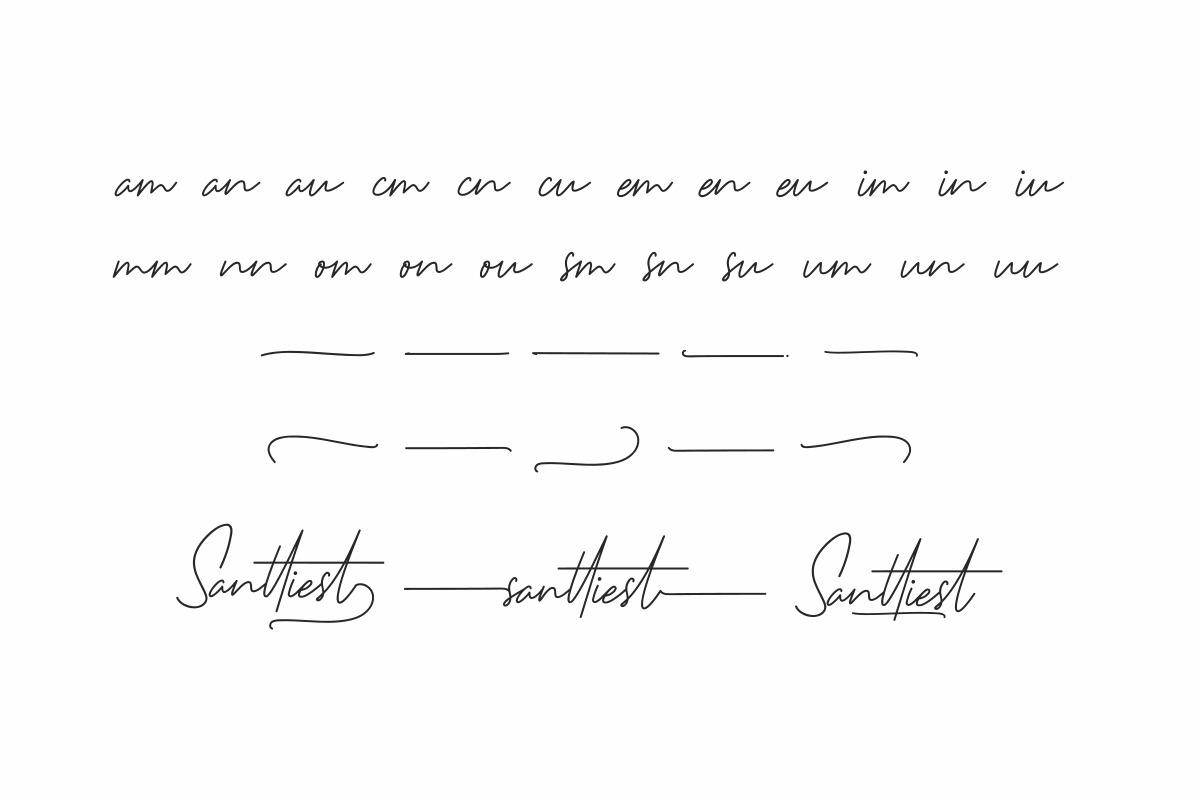 am an au cm cn cu em en eu im in iu
mm nn om on ou sm sn su um un uu
Santtiest santtiest Santtiest